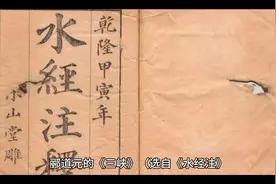 乾隆甲寅年
水經注釋
小山堂雕
郦道元的《三峡》（选自《水经注》